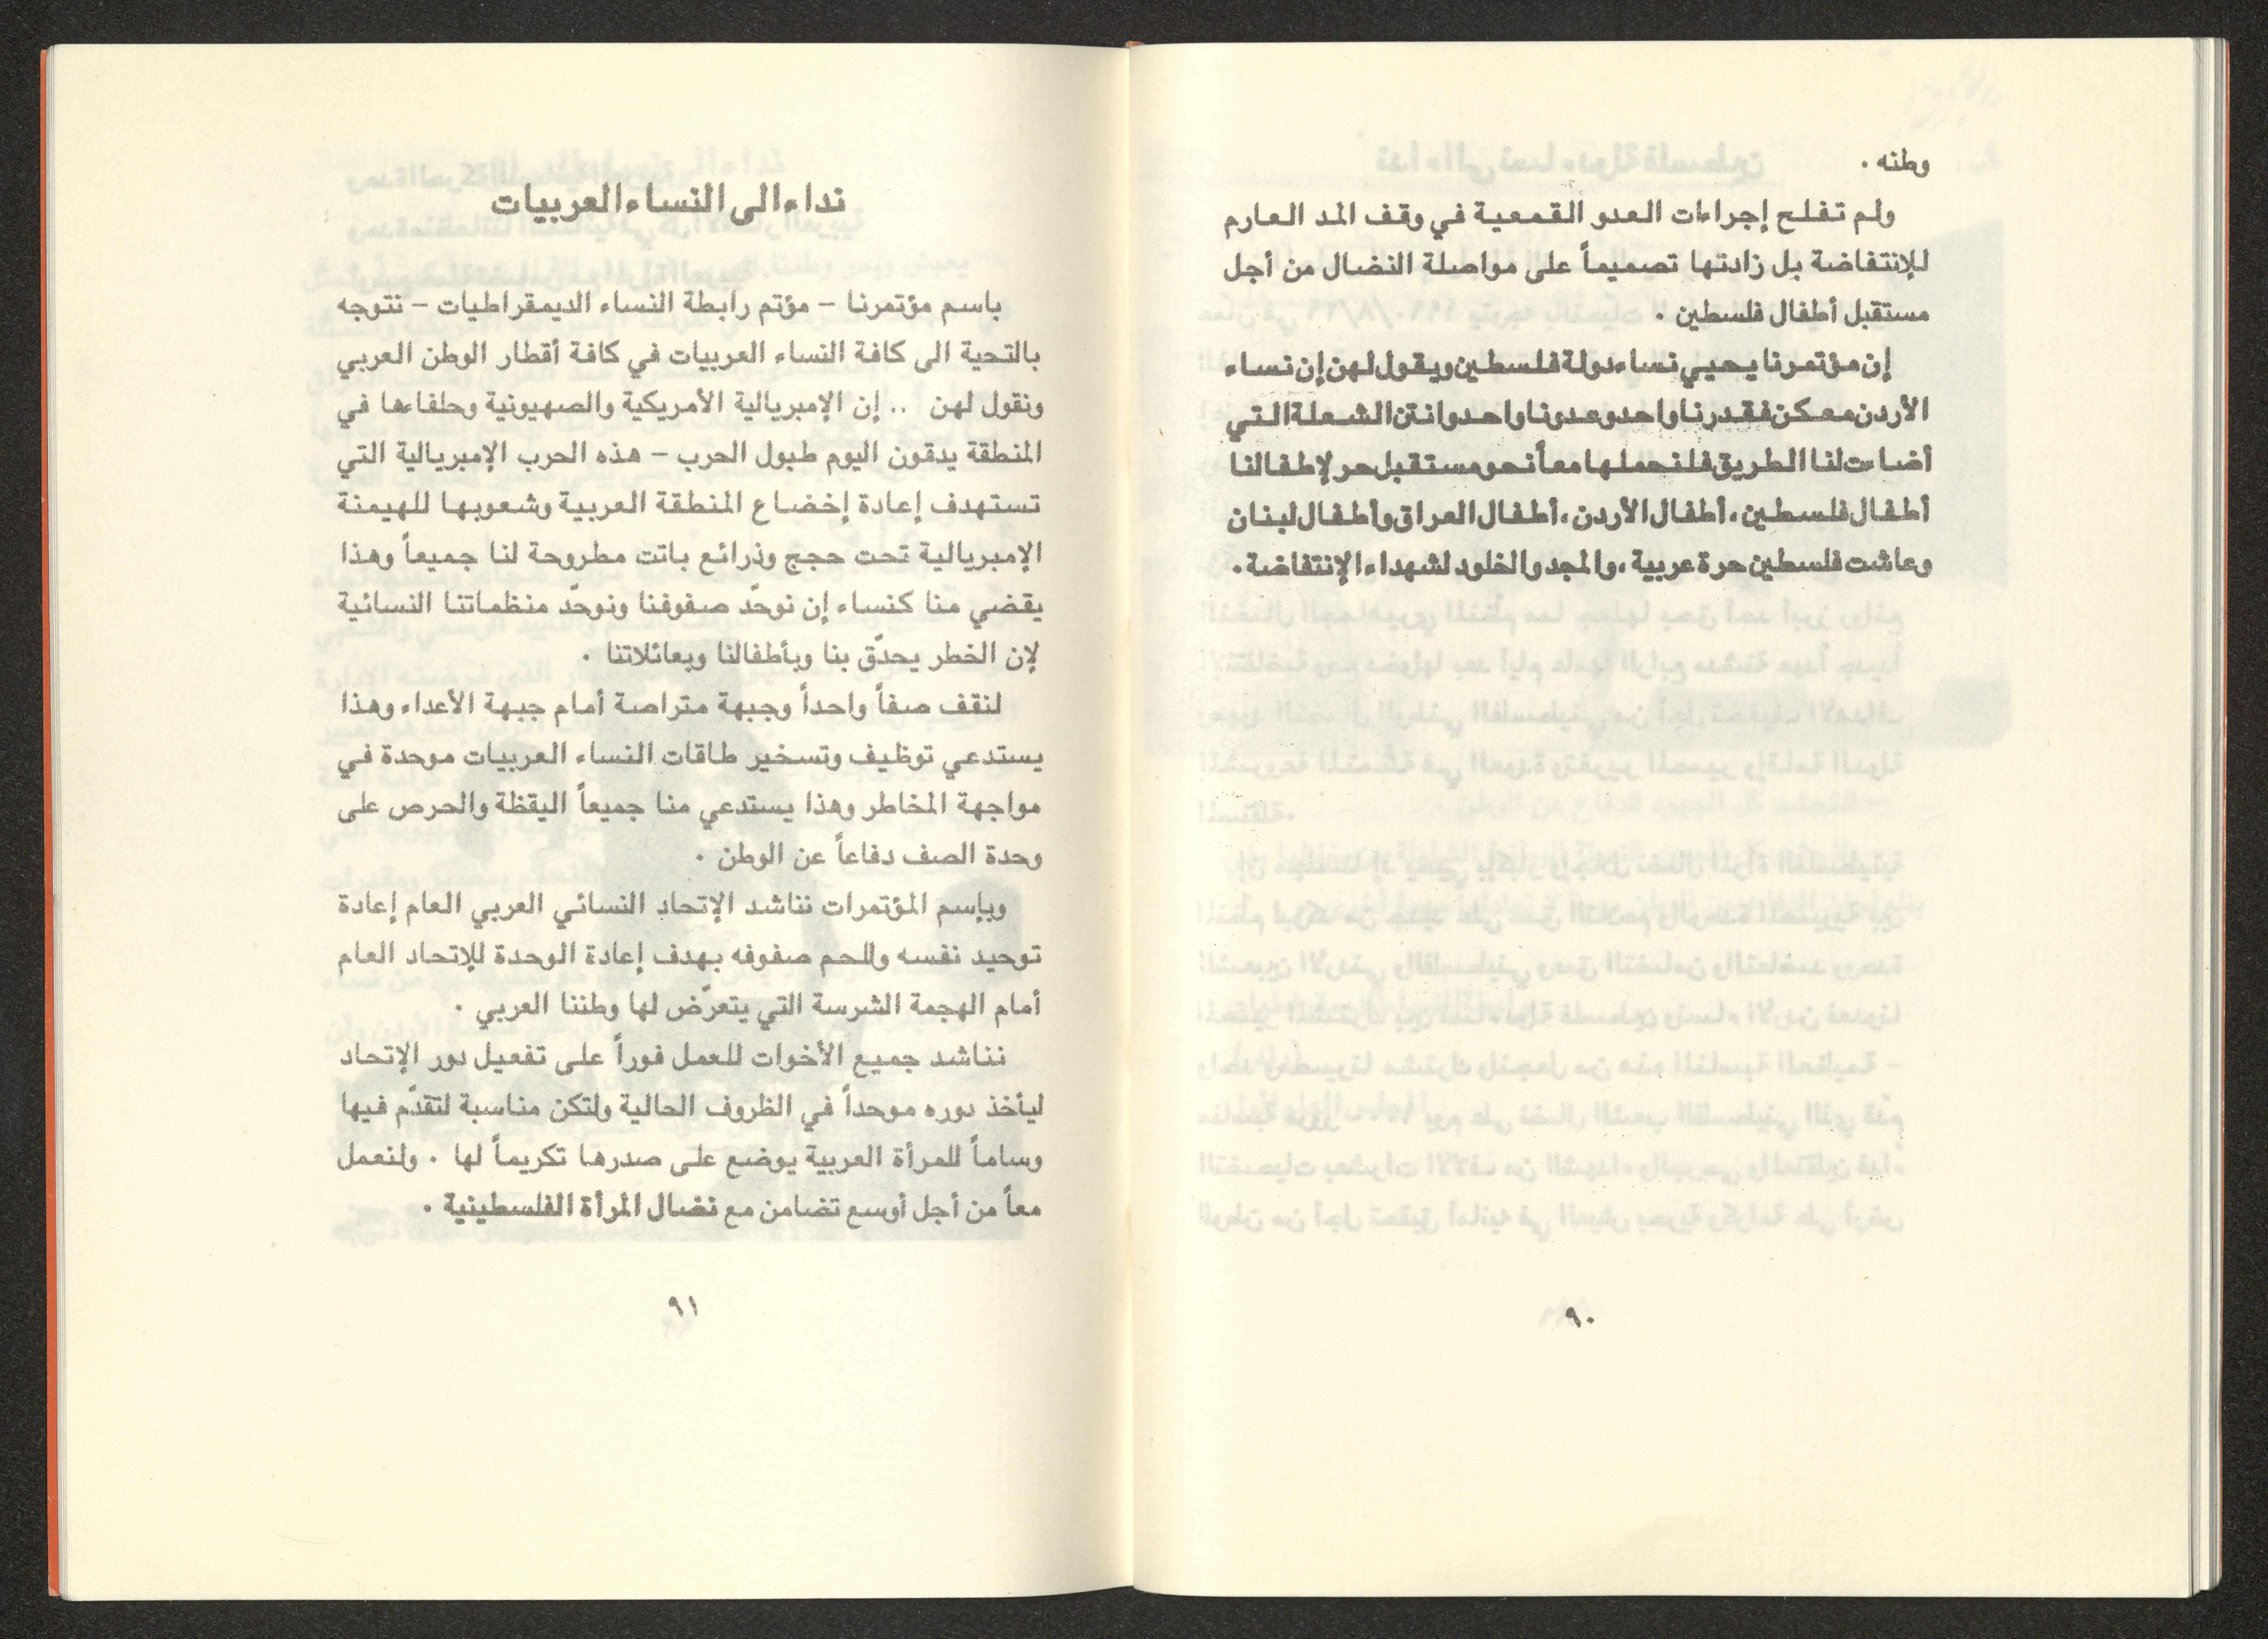 وطنه .
ولم تفلح إجراءات العدو القمعية في وقف المد العارم
للإنتفاضة بل زادتها تصميماً على مواصلة النضال من أجل
مستقبل أطفال فلسطين .
إن مؤتمرنا يحيي نساء دولة فلسطين ويقول لهن إن نساء
الأردن معكن فقدرنا واحد وعدونا واحد وانتن الشعلة التي
أضاءت لنا الطريق فلنحملها معاً نحو مستقبل حر لإطفالنا
أطفال فلسطين ، أطفال الأردن ، أطفال العراق وأطفال لبنان
وعاشت فلسطين حرة عربية ، والمجد والخلود لشهداء الإنتفاضة .
٩٠
نداء الى النساء العربيات
باسم مؤتمرنا – مؤتم رابطة النساء الديمقراطيات – نتوجه
بالتحية الى كافة النساء العربيات في كافة أقطار الوطن العربي
ونقول لهن .. إن الإمبريالية الأمريكية والصهيونية وحلفاءها في
المنطقة يدقون اليوم طبول الحرب – هذه الحرب الإمبريالية التي
تستهدف إعادة إخضاع المنطقة العربية وشعوبها للهيمنة
الإمبريالية تحت حجج وذرائع باتت مطروحة لنا جميعاً وهذا
يقضي منا كنساء إن نوحّد صفوفنا ونوحّد منظماتنا النسائية
لإن الخطر يحدّق بنا وبأطفالنا وبعائلاتنا .
لنقف صفاً واحداً وجبهة متراصة أمام جبهة الأعداء وهذا
يستدعي توظيف وتسخير طاقات النساء العربيات موحدة في
مواجهة المخاطر وهذا يستدعي منا جميعاً اليقظة والحرص على
وحدة الصف دفاعاً عن الوطن .
وبإسم المؤتمرات نناشد الإتحاد النسائي العربي العام إعادة
توحيد نفسه وللحم صفوفه بهدف إعادة الوحدة للإتحاد العام
أمام الهجمة الشرسة التي يتعرّض لها وطننا العربي .
نناشد جميع الأخوات للعمل فوراً على تفعيل دور الإتحاد
ليأخذ دوره موحداً في الظروف الحالية ولتكن مناسبة لتقدّم فيها
وساماً للمرأة العربية يوضع على صدرها تكريماً لها . ولنعمل
معاً من أجل أوسع تضامن مع نضال المرأة الفلسطينية .
٩١